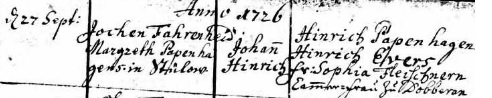 Anno 1726
d 27 Sept: Jochen Fahrenheid Johan̄ Hinrich Papenhagen
Margreth Papenha Hinrich Hinrich Evers
gens in Stülow fr: Sophia Fleischnern
Cammerfrau zu Dobberan